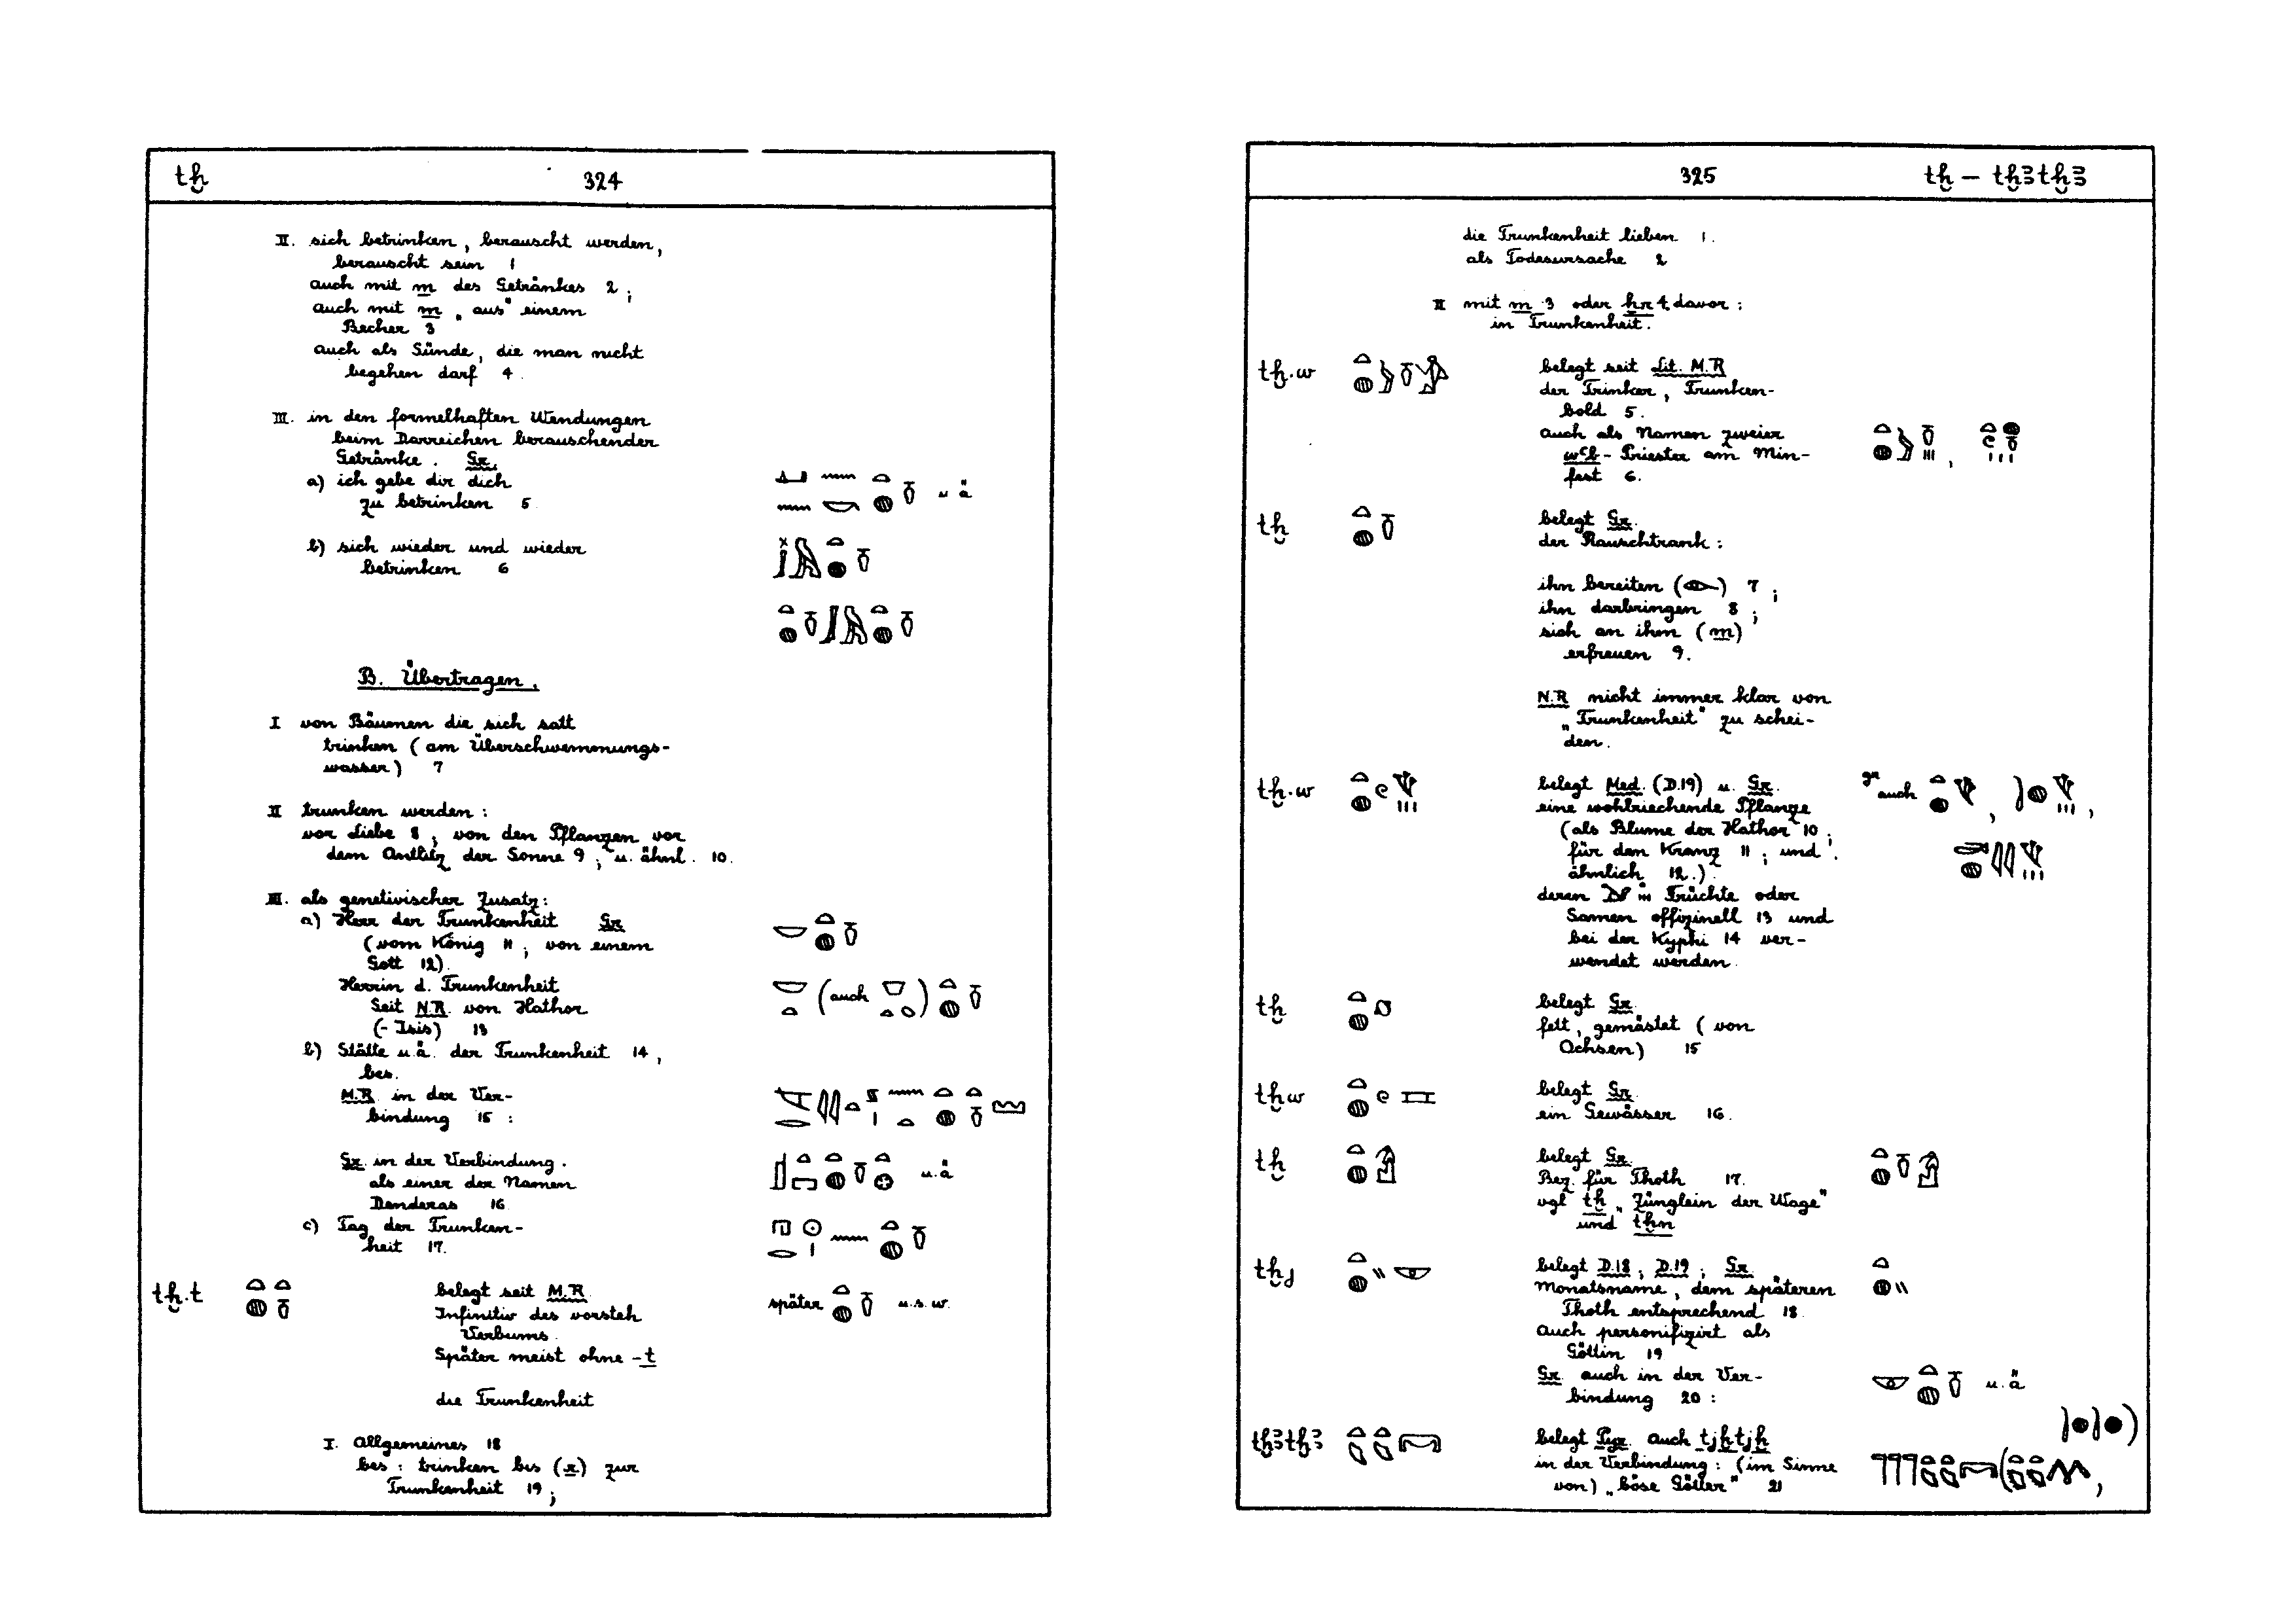 tẖ 324
II. sich betrinken, berauscht werden,
berauscht sein 1
auch mit m des Getränkes 2;
auch mit m „aus" einem
Becher 3
auch als Sünde, die man nicht
begehen darf 4.
III. in den formelhaften Wendungen
beim Darreichen berauschender
Getränke. Gr.
a) ich gebe dir dich
zu betrinken 5 u. ä
b) sich wieder und wieder
betrinken 6
B. Übertragen.
I von Bäumen die sich satt
trinken (am Überschwemmungs-
wasser) 7
II trunken werden:
vor Liebe 8; von den Pflanzen vor
dem Antlitz der Sonne 9; u. ähnl. 10.
III. als genetivischer Zusatz:
a) Herr der Trunkenheit Gr
(vom König 11; von einem
Gott 12).
Herrin d. Trunkenheit (auch )
Seit N.R. von Hathor
(-Isis) 13
b) Stätte u. ä. der Trunkenheit 14,
bes.
M.R. in der Ver-
bindung 15:
Gr. in der Verbindung.
als einer der Namen u. ä
Denderas 16
c) Tag der Trunken-
heit 17.
tẖ.t belegt seit M.R. später u.s.w.
Infinitiv des vorsteh
Verbums.
Später meist ohne -t
die Trunkenheit
I. Allgemeines 18
bes: trinken bis (r) zur
Trunkenheit 19;
325 tẖ – tẖꜣtẖꜣ
die Trunkenheit lieben 1.
als Todesursache 2
II mit m 3 oder ḥr 4 davor:
in Trunkenheit.
tẖ.w belegt seit Lit. M.R
der Trinker, Trunken-
bold 5.
auch als Namen zweier
wꜥb-Priester am Min-
fest 6.
tẖ belegt Gr.
der Rauschtrank:
ihn bereiten ( ) 7;
ihn darbringen 8;
sich an ihm (m)
erfreuen 9.
N.R nicht immer klar von
„Trunkenheit" zu schei-
den.
tẖ.w belegt Med. (D.19) u. Gr. gr auch
eine wohlriechende Pflanze
(als Blume der Hathor 10;
für den Kranz 11; und
ähnlich 12.)
deren Früchte oder
Samen offizinell 13 und
bei der Kyphi 14 ver-
wendet werden.
tẖ belegt Gr.
fett, gemästet (von
Ochsen) 15
tẖw belegt Gr.
ein Gewässer 16.
tẖ belegt Gr.
Bez. für Thoth 17.
vgl tẖ „Zünglein der Wage"
und tẖn
tẖj belegt D.18; D.19; Gr.
Monatsname, dem späteren
Thoth entsprechend 18.
auch personifizirt als
Göttin 19
Gr. auch in der Ver-
bindung 20: u. ä
tẖꜣtẖꜣ belegt Pyr. auch tjẖtjẖ
in der Verbindung: (im Sinne
von) „böse Götter" 21